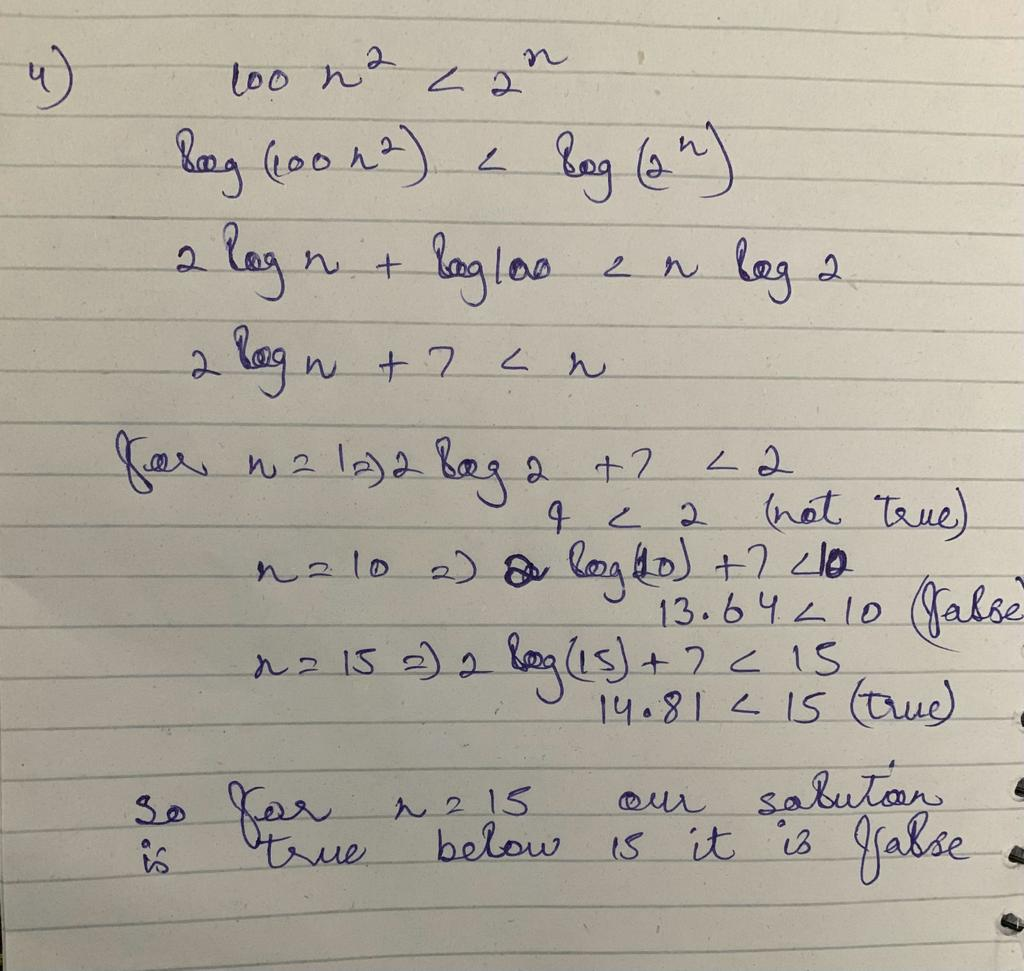 4) 100 n² < 2ⁿ
log (100 n²) < log (2ⁿ)
2 log n + log 100 < n log 2
2 log n + 7 < n
for n = 1 => 2 log 2 + 7 < 2
9 < 2 (not true)
n = 10 => 2 log(10) + 7 < 10
13.64 < 10 (false)
n = 15 => 2 log(15) + 7 < 15
14.81 < 15 (true)
so for n = 15 our solution
is true below 15 it is false